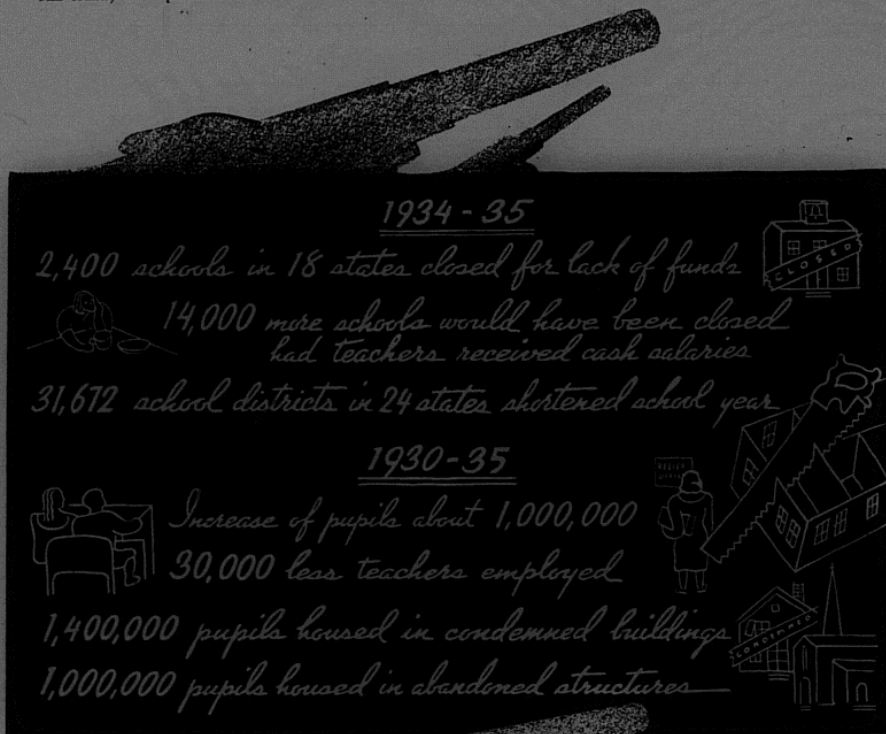 1934-35
2,400 schools in 18 states closed for lack of funds
CLOSED
14,000 more schools would have been closed
had teachers received cash salaries
31,672 school districts in 24 states shortened school year
1930-35
RELIEF
Increase of pupils about 1,000,000
30,000 less teachers employed
1,400,000 pupils housed in condemned buildings
CONDEMNED
1,000,000 pupils housed in abandoned structures